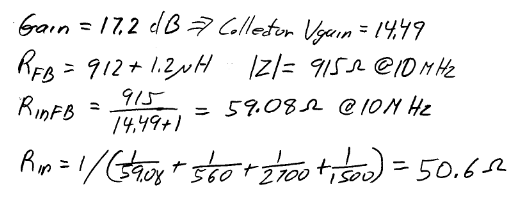 Gain = 17.2 dB ⇒ Collector Vgain = 14.49
RFB = 912 + 1.2µH |Z| = 915Ω @10MHz
RinFB = 915/(14.49+1) = 59.08Ω @10MHz
Rin = 1/(1/59.08 + 1/560 + 1/2700 + 1/1500) = 50.6Ω